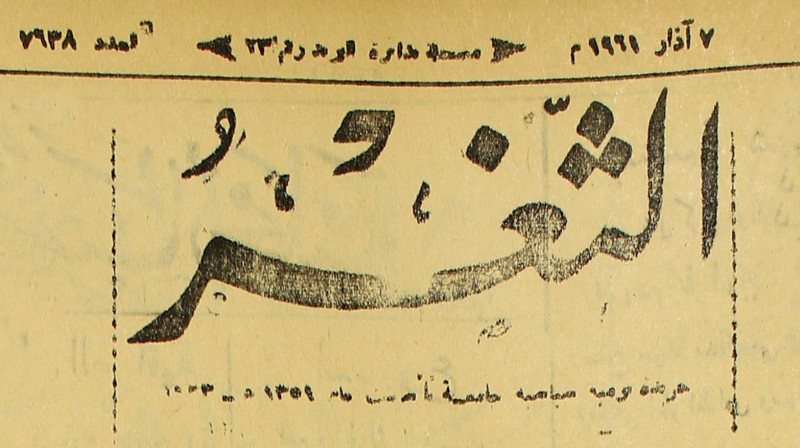 ٧ آذار ١٩٦١ م مسجلة بدائرة البريد رقم ٢٣ العدد ٧٦٣٨
الثّغْرُ
جريدة يومية سياسية جامعة تأسست عام ١٣٥١ هـ ١٩٣٣